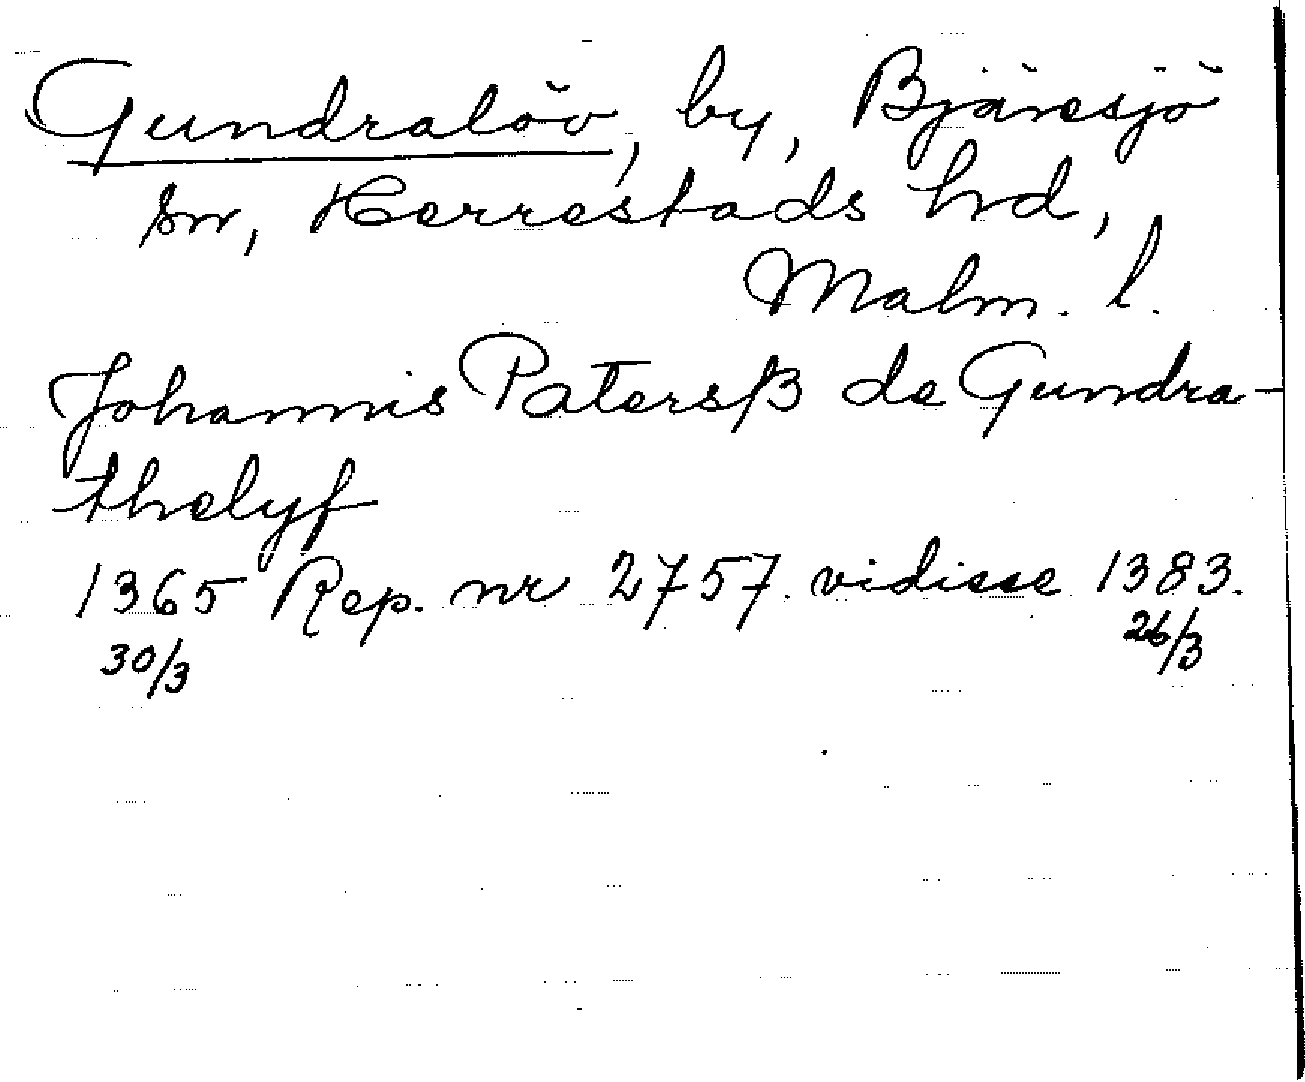 Gundralöv, by, Bjäresjö
sn, Herrestads hrd,
Malm. l.
Johannis Patersß de Gundra-
thelyf
1365 Rep. nr 2757 vidisse 1383.
30/3 26/3